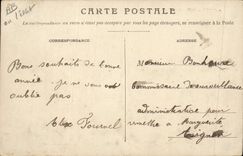 CARTE POSTALE
La correspondance au recto n'est pas acceptée par tous les pays étrangers, se renseigner à la Poste
CORRESPONDANCE
ADRESSE
Bons souhaits de bonne
année. je ne vous
oublie pas
Fournel
Monsieur
Commissaire de surveillance
administrative pour
remettre a Marguerite